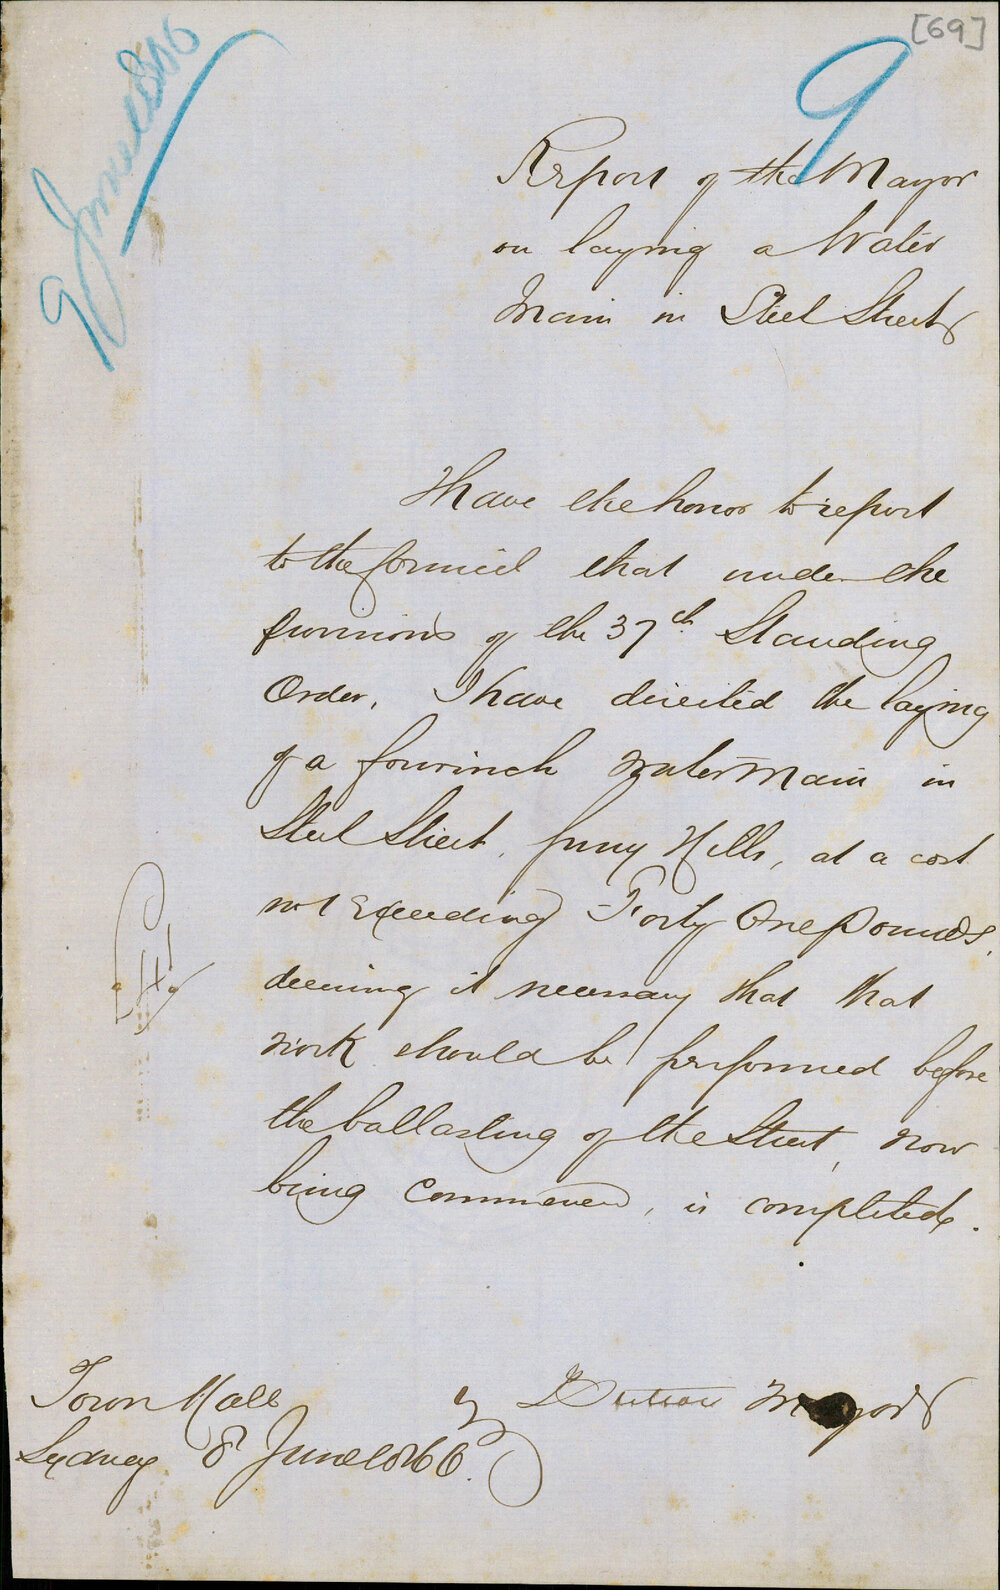 [69]
9
9 June 1866
Report of the Mayor
on laying a Water
Main in Steel Street
I have the honor to report
to the Council that under the
provisions of the 37th. Standing
Order, I have directed the laying
of a four inch water main in
Steel Street, Surry Hills, at a cost
not exceeding Forty One Pounds,
deeming it necessary that that
work should be performed before
the ballasting of the Street, now
being commenced, is completed.
Town Hall
Sydney 8 June 1866.
Mayor